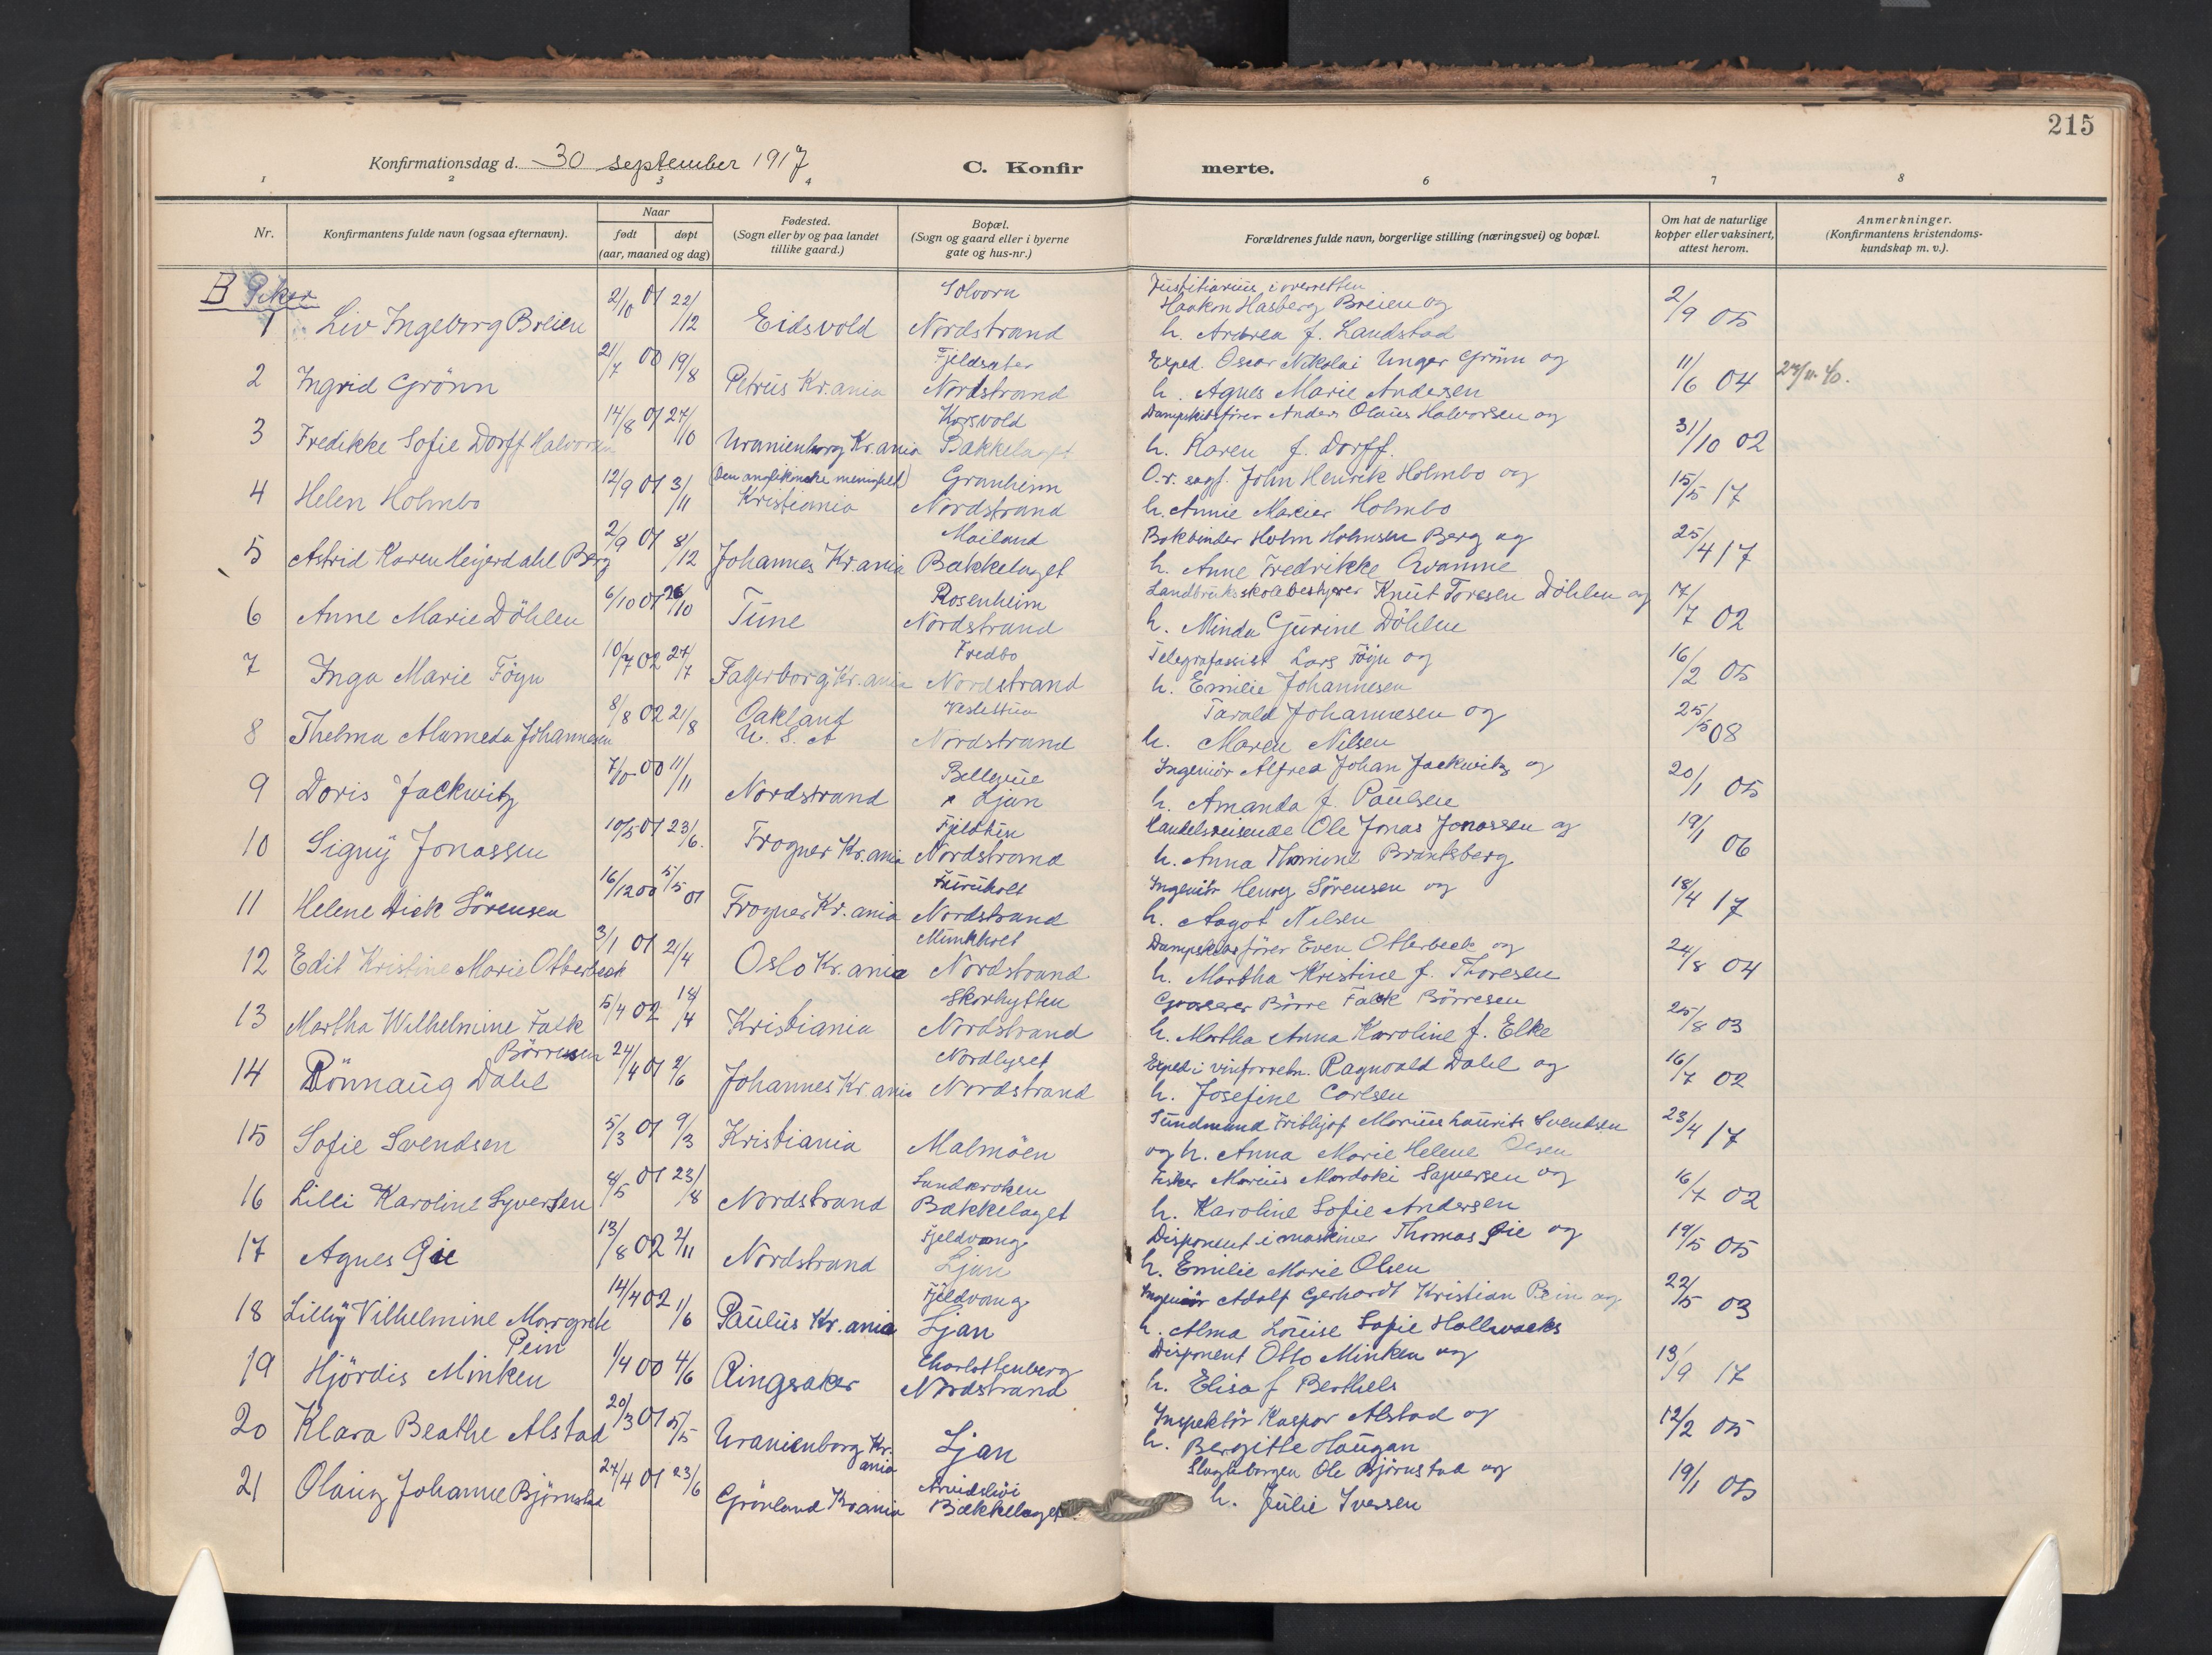 215
Konfirmationsdag d. 30 september 1917
C. Konfir merte.
1 2 3 4 6 7 8
Nr.
Konfirmantens fulde navn (ogsaa efternavn).
Naar
født døpt
(aar, maaned og dag)
Fødested.
(Sogn eller by og paa landet
tillike gaard.)
Bopæl.
(Sogn og gaard eller i byerne
gate og hus-nr.)
Forældrenes fulde navn, borgerlige stilling (næringsvei) og bopæl.
Om hat de naturlige
kopper eller vaksinert,
attest herom.
Anmerkninger.
(Konfirmantens kristendoms-
kundskap m. v.).
B Piker
1 Liv Ingeborg Breien 2/10 01 22/12 Eidsvold Solvorn Nordstrand
Justitiarius i overretten
Haakon Hasberg Breien og
h. Andrea f. Landstad 2/9 05
2 Ingrid Grönn 21/7 00 19/8 Petrus Kr.ania Fjeldsæter Nordstrand
Exped. Oscar Nikolai Unger Grönn og
h. Agnes Marie Andersen 11/6 04
3 Fredikke Sofie Dorff Halvorsen 14/8 01 27/10 Uranienborg Kr.ania Korsvold Bækkelaget
Dampskibsfører Anders Olaus Halvorsen og
h. Karen f. Dorff. 31/10 02
4 Helen Holmbo 12/9 01 3/11 Kristiania Granheim Nordstrand
O.r. sagf. John Henrik Holmbo og
h. Annie Holmbo 15/5 17
5 Astrid Karen Meijerdahl Berg 2/9 01 8/12 Johannes Kr.ania Mailand Bækkelaget
Bokbinder Holm Holmsen Berg og
h. Anne Fredrikke Qvamme 25/4 17
6 Anne Marie Döhlen 6/10 01 26/10 Tune Rosenheim Nordstrand
Landbruksskolebestyrer Knut Toresen Döhlen og
h. Minda Gurine Döhlen 17/7 02
7 Inga Marie Föyn 10/7 02 27/7 Fagerborg Kr.ania Fredbo Nordstrand
Telegrafassist Lars Föyn og
h. Emilie Johannesen 16/2 05
8 Thelma Alameda Johannesen 8/8 02 21/8 Oakland U. S. A Nordstrand
Tarald Johannesen og
h. Maren Nilsen 25/5 08
9 Doris Jackwitz 00 11/11 Nordstrand Bellevue Ljan
Ingeniör Alfred Johan Jackwitz og
h. Amanda f. Paulsen 20/1 05
10 Signy Jonassen 10/5 01 23/6. Frogner Kr.ania Nordstrand
Handelsreisende Ole Jonas Jonassen og
h. Anna Thomine Brantsberg 19/1 06
11 Helene Dick Sörensen 16/12 00 5/5 01 Frogner Kr.ania Furuholt Nordstrand
Ingeniör Henry Sörensen og
h. Aagot Nilsen 18/4 17
12 Edit Kristine Marie Otterbeck 3/1 01 21/4 Oslo Kr.ania Munkholt Nordstrand
Dampskibsfører Even Otterbeck og
h. Martha Kristine f. Thoresen 24/8 04
13 Martha Wilhelmine Falck Börresen 5/4 02 18/4 Kristiania Skovhytten Nordstrand
Grosserer Börre Falck Börresen
h. Martha Anna Karoline f. Elke 25/8 03
14 Rönnaug Dahl 24/4 01 2/6 Johannes Kr.ania Nordlyset Nordstrand
Exped i vinforretn. Ragnvald Dahl og
h. Josefine Carlsen 16/7 02
15 Sofie Svendsen 5/3 01 9/3 Kristiania Malmöen
Sundmand Frithjof Marius Laurits Svendsen
og h. Anna Marie Helene Olsen 23/4 17
16 Lilli Karoline Syversen 8/5 01 23/8 Nordstrand Sandkroken Bækkelaget
Fisker Marius Mardoki Syversen og
h. Karoline Sofie Andersen 16/7 02
17 Agnes Gie 13/8 02 2/11 Nordstrand Fjeldvang Ljan
Disponent i maskiner Thomas Gie og
h. Emilie Marie Olsen 19/5 05
18 Lilly Vilhelmine Margrete Pein 14/4 02 1/6 Paulus Kr.ania Fjeldvang Ljan
Ingeniör Adolf Gerhardt Kristian Pein og
h. Alma Louise Sofie 22/5 03
19 Hjördis Minken 1/4 00 4/6 Ringsaker Charlottenberg Nordstrand
Disponent Otto Minken og
h. Elisa f Berthels 13/9 17
20 Klara Beathe Alstad 20/3 01 5/5 Uranienborg Kr.ania Ljan
Inspektör Kaspar Alstad og
h. Bergitte Haugan 12/2 05
21 Olaug Johanne Björnstad 24/4 01 23/6 Grönland Kr.ania Bækkelaget
Ole Björnstad og
h. Julie Iversen 19/1 05